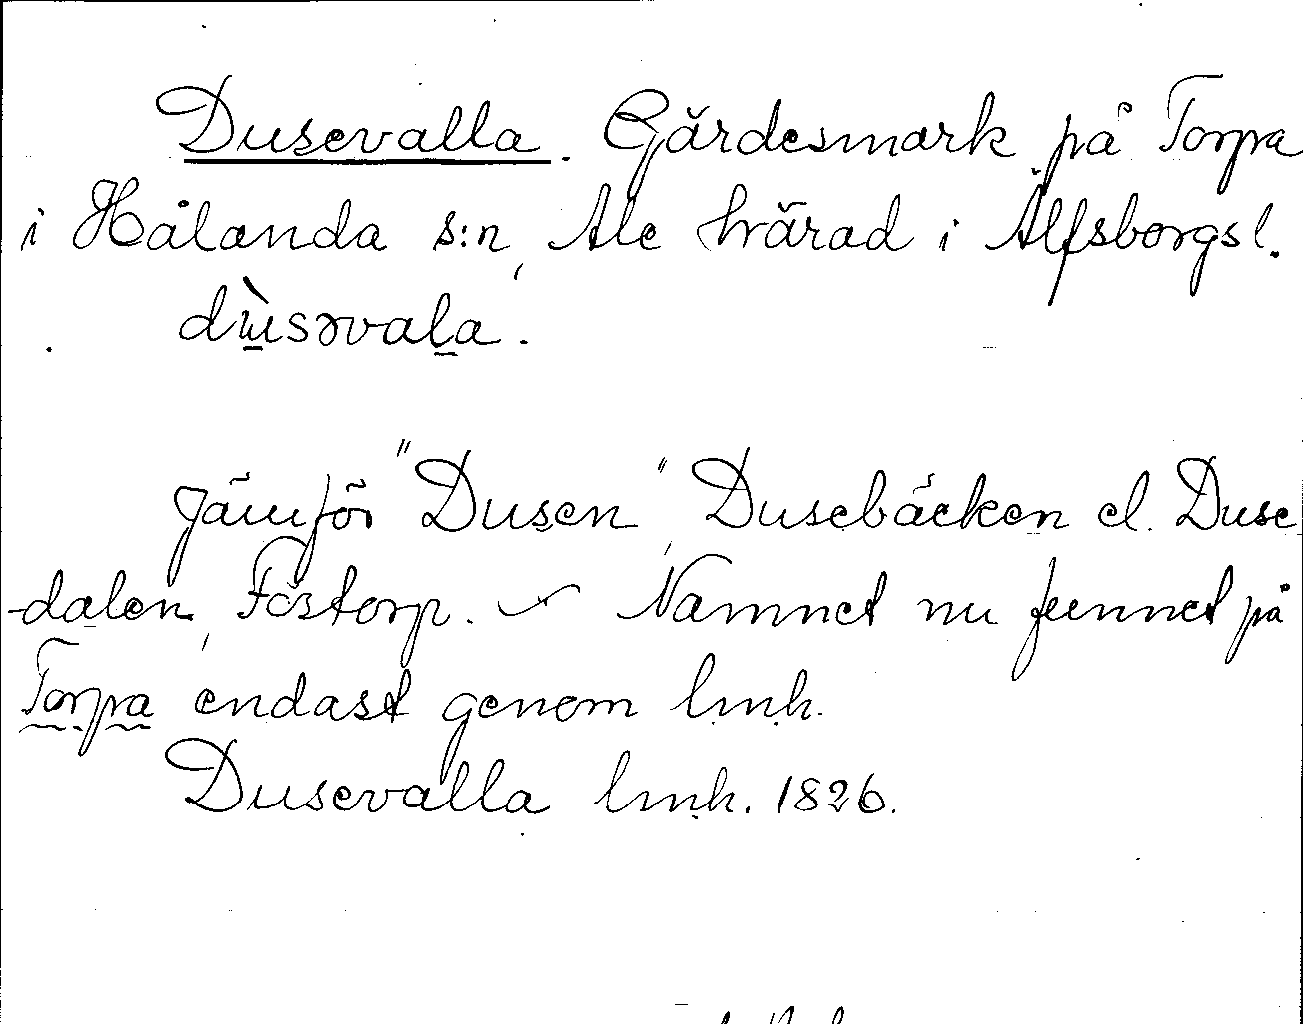 Dusevalla. Gärdesmark på Torpa
i Hålanda s:n, Ale härad i Älfsborgs l.
dùsəvala.
Jämför "Dusen", Dusebäcken el. Duse
-dalen, Fästorp. Namnet nu funnet på
Torpa endast genom lmh.
Dusevalla lmh. 1826.